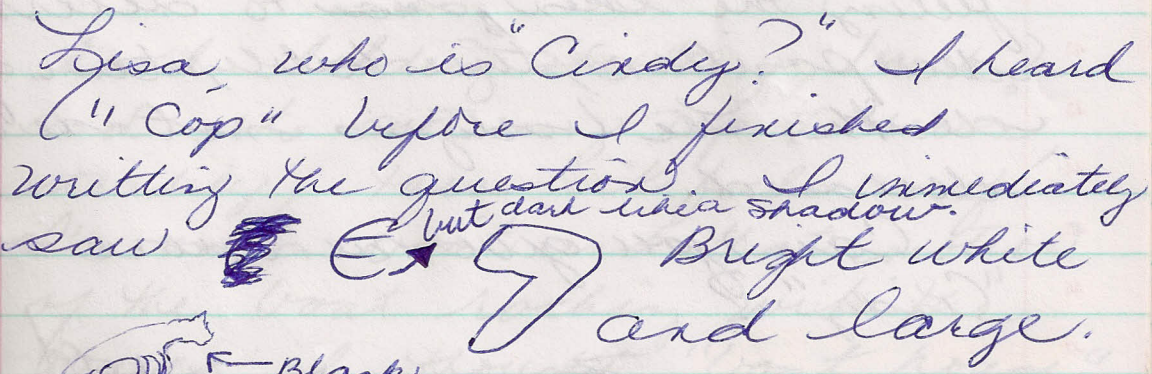 Lisa, who is "Cindy?" I heard
("Cop" before I finished
writting the question. I immediately
but dark like a shadow.
saw E Bright white
and large.
Black